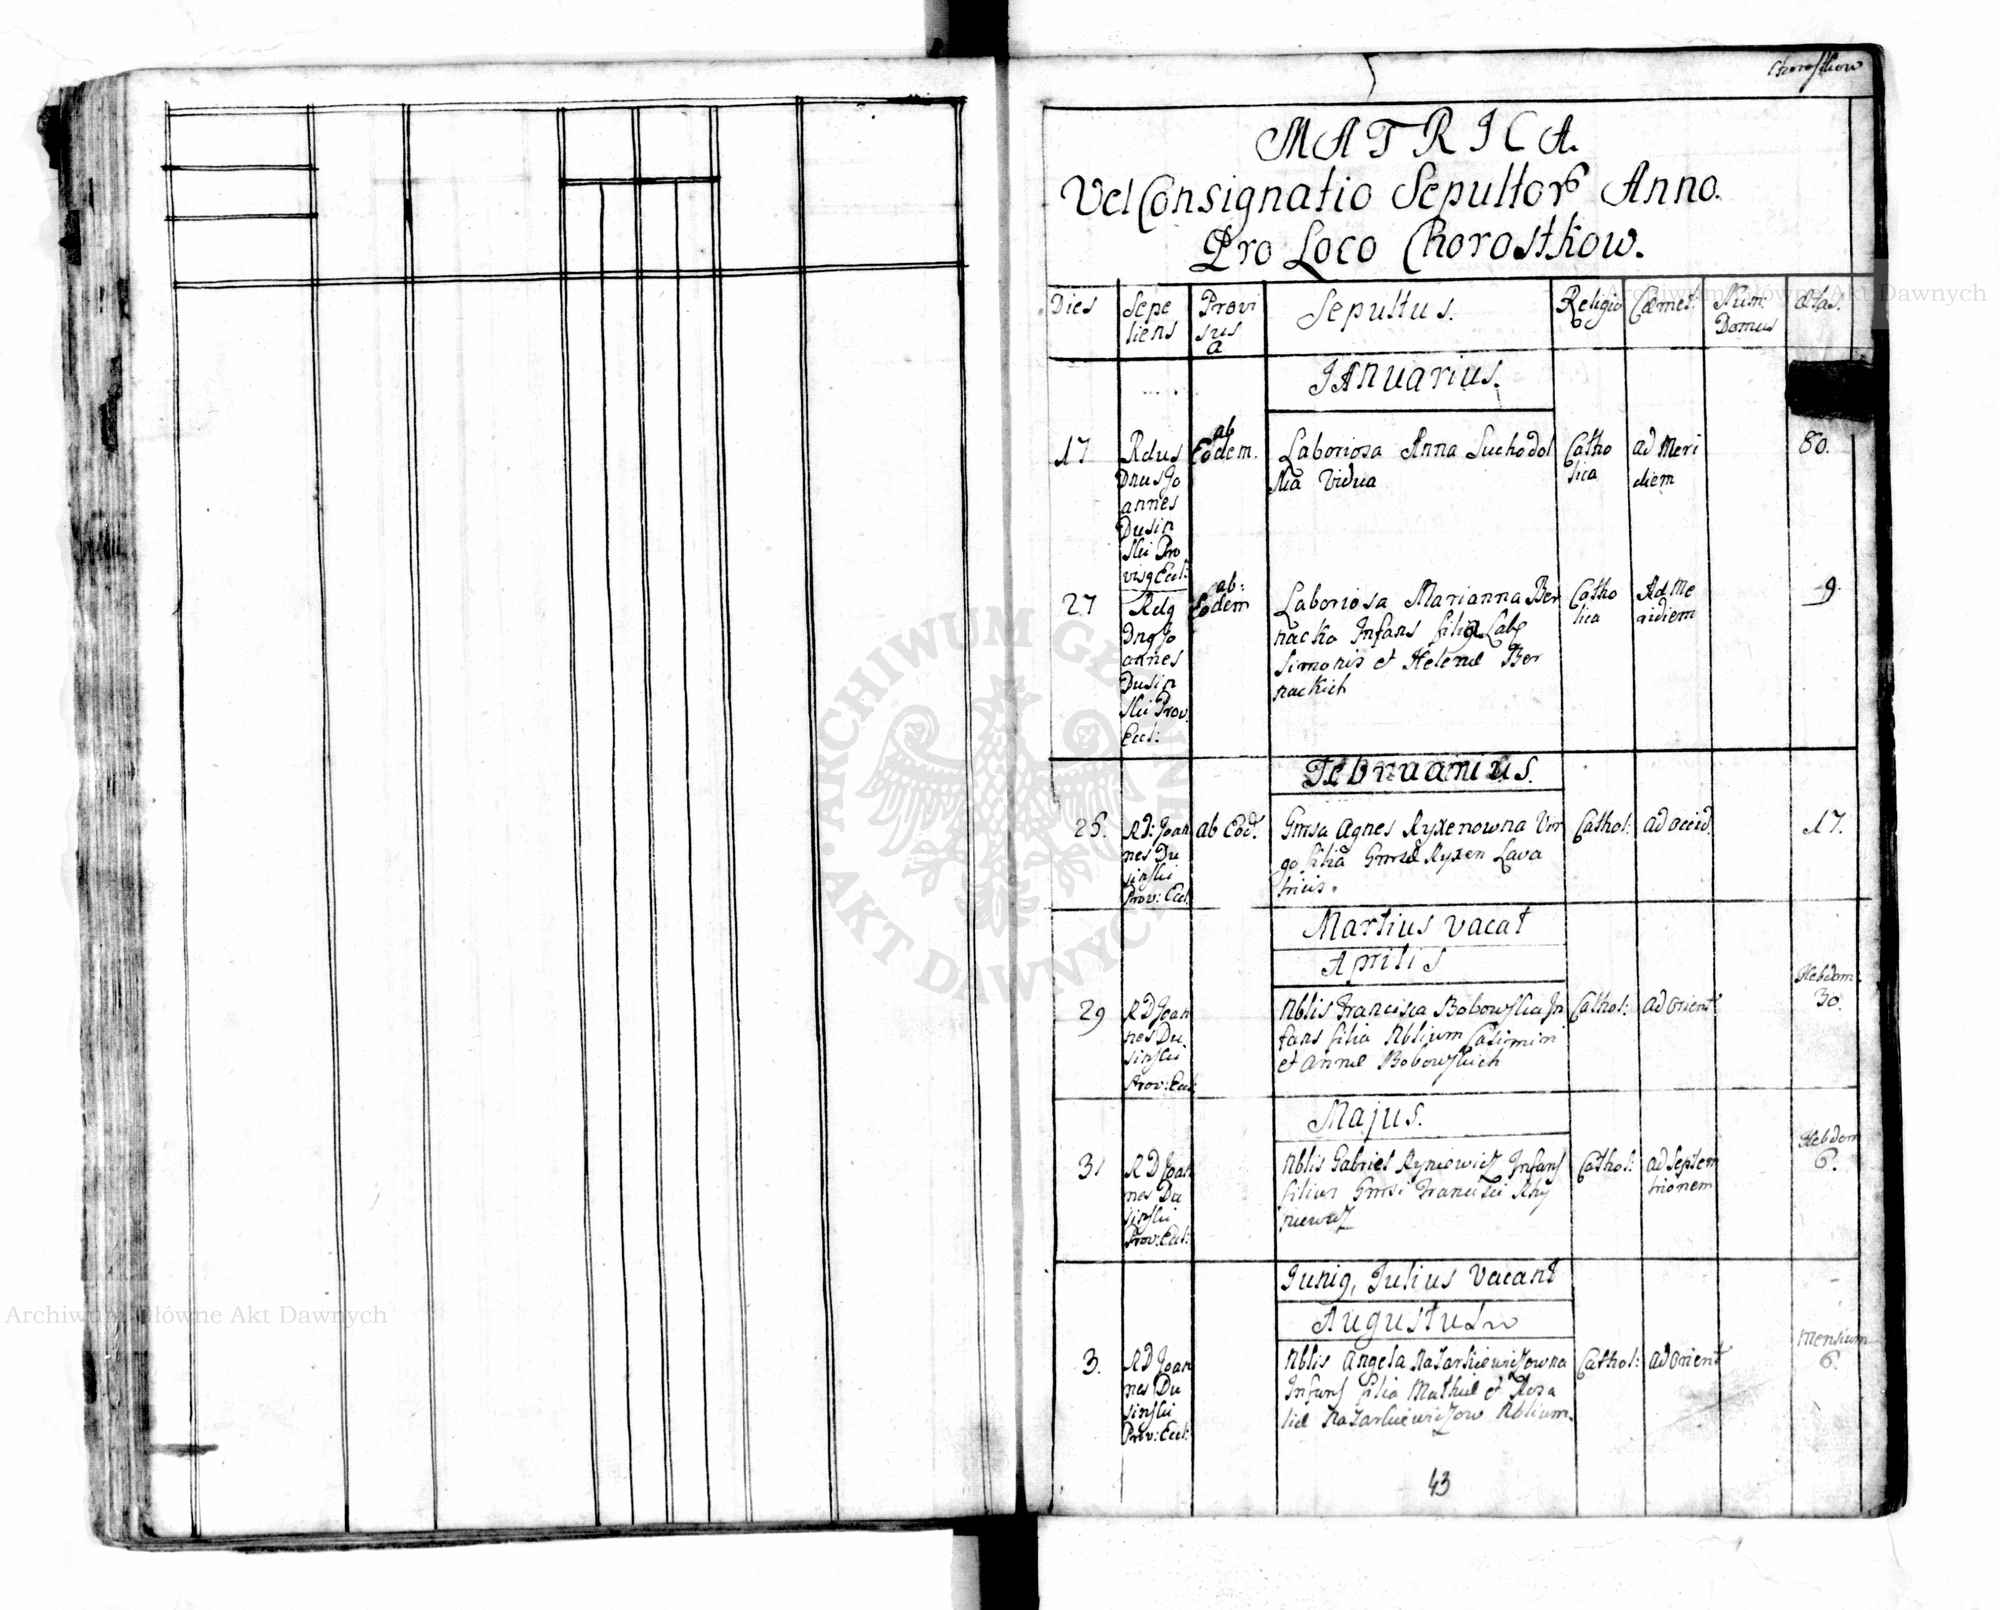 Chorostkow
MATRICA.
Vel Consignatio Sepultor Anno.
Pro Loco Chorostkow.
Dies
Sepe
liens
Provi
sus
a
Sepultus.
Religio
Cæmet:
Num:
Domus
Ætas.
IAnuarius.
17
Rdus
Dnus Jo
annes
Dusin
ski Pro
vis9 Eccl:
ab
Eodem.
Laboriosa Anna Suchodol
ska Vidua
Catho
lica
ad Meri
diem
80.
27
Rd9
Dn9 Jo
annes
Dusin
ski Prov.
Eccl:
ab:
Eodem
Laboriosa Marianna Ber
nacka Infans filia Lab
Simonis et Helenæ Ber
nackich
Catho
lica
Ad Me
ridiem
9.
Februarius.
RD: Joan
nes Du
sinski
Prov: Eccl:
ab Eod.
Gnrsa Agnes Ryxenowna Vir
go filia Gnrsæ Ryxen Lava
tricis.
Cathol:
ad occid.
17.
Martius vacat
Aprilis
29
RD Joan
nes Du
sinski
Prov: Eccl:
Nblis Francisca Bobowska In
fans filia Nblium Casimiri
et Annæ Bobowskich
Cathol:
ad orient
Hebdom.
30.
Majus.
31
RD Joan
nes Du
sinski
Prov: Eccl:
Nblis Gabriel Ryniewicz Infans
filius Gnrsi Francisci Rhy
niewicz
Cathol:
ad Septem
trionem
Hebdom
6.
Juni9, Julius Vacant
Augustus
3.
RD Joan
nes Du
sinski
Prov: Eccl:
Nblis Angela Nazarkiewiczowna
Infans filia Mathiæ et Rosa
liæ Nazarkiewiczow Nblium.
Cathol:
ad orient
Mensium
6.
43
ARCHIWUM GŁÓWNE
AKT DAWNYCH
Archiwum Główne Akt Dawnych
Archiwum Główne Akt Dawnych